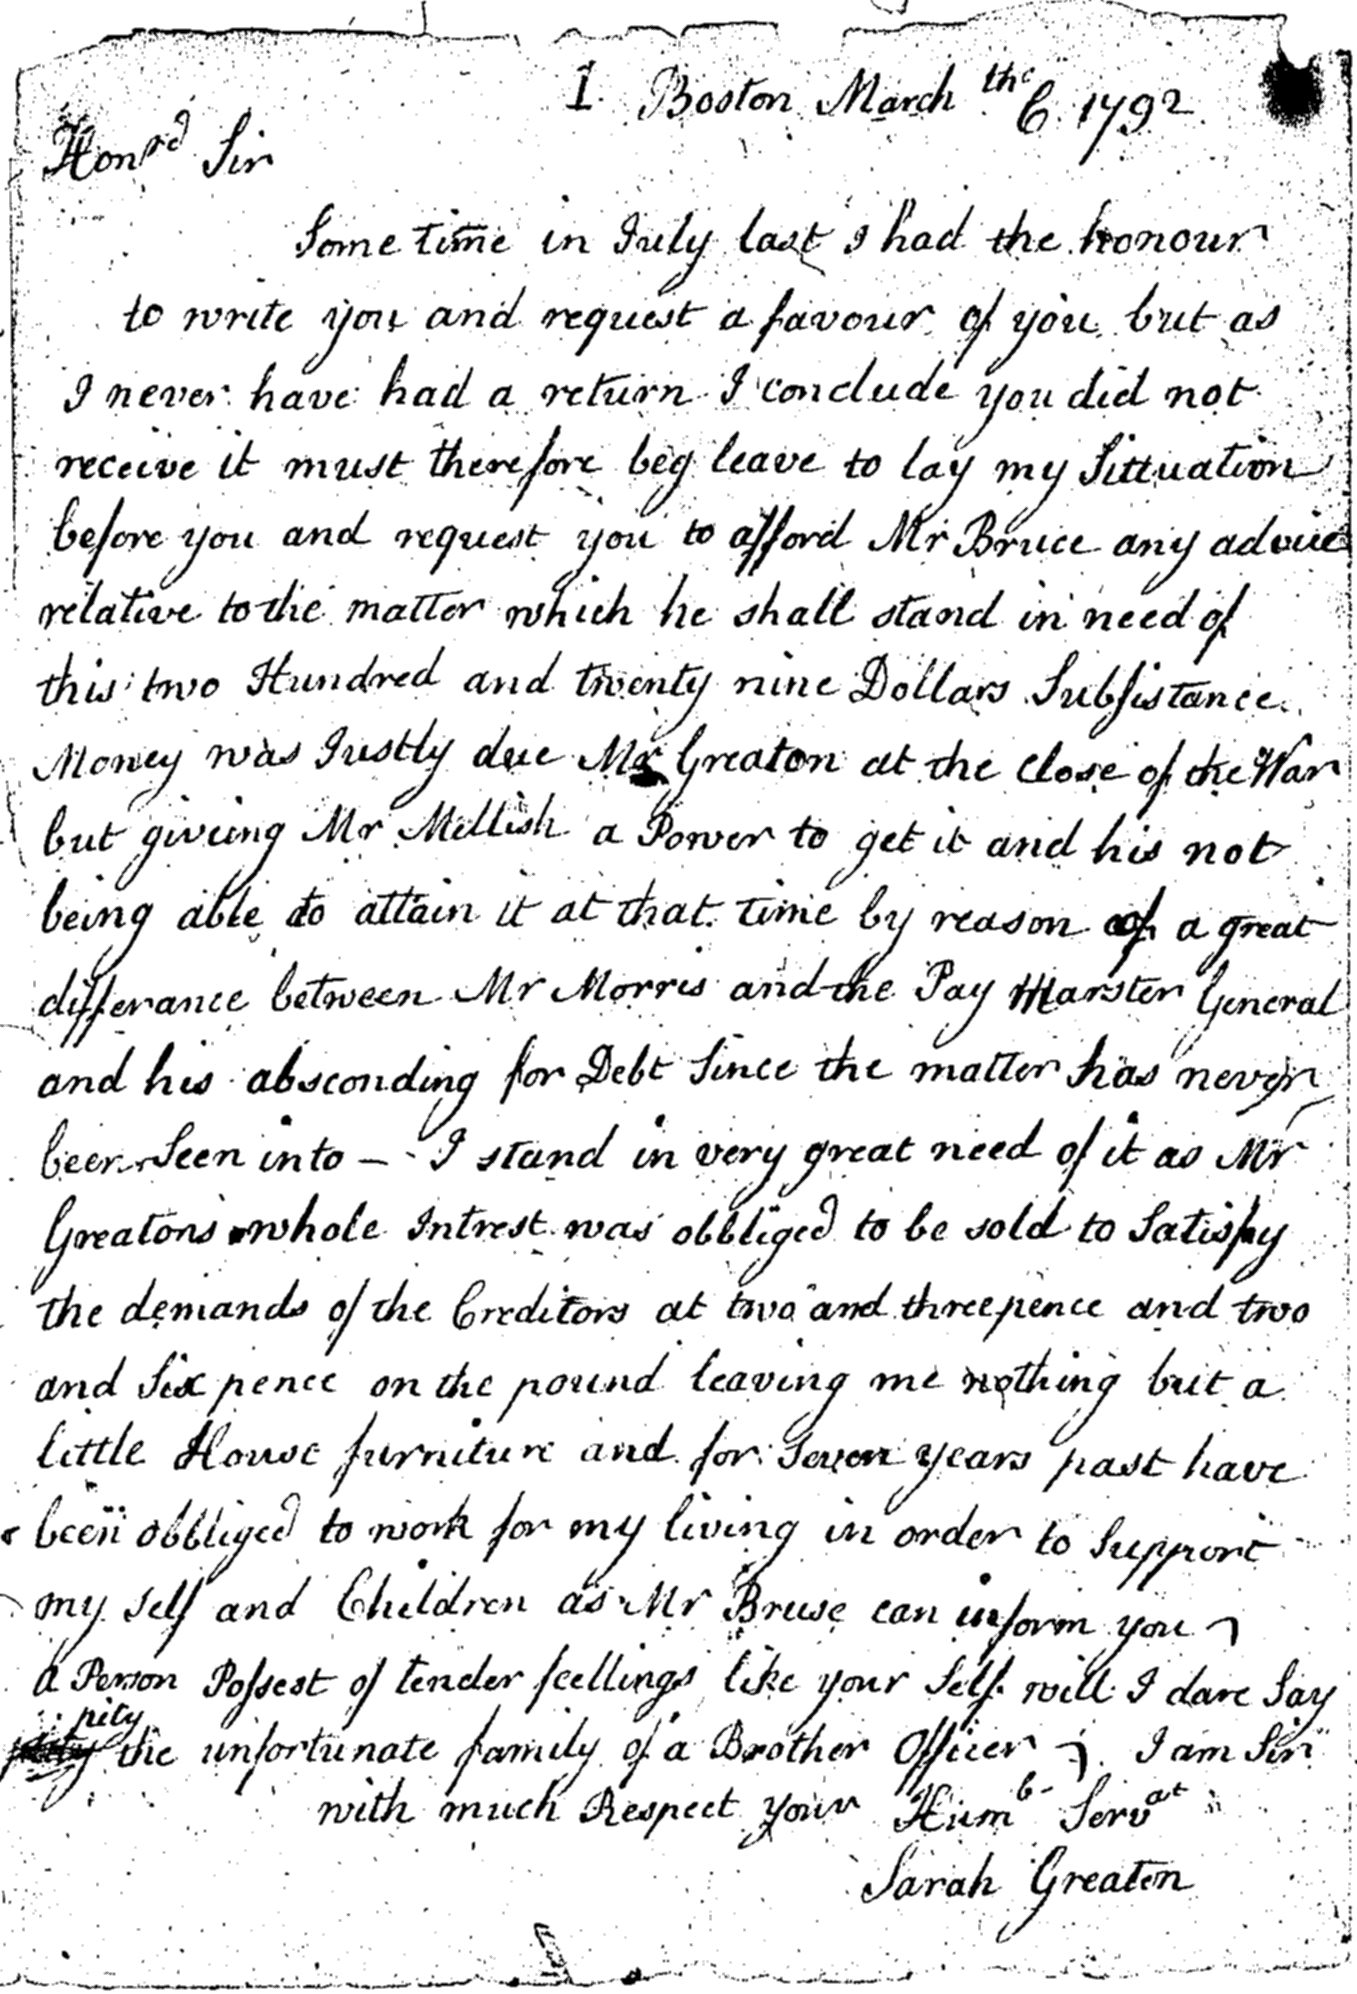 1. Boston March the 6. 1792
Honrd Sir
Some time in July last I had the honour
to write you and request a favour of you but as
I never have had a return I conclude you did not
receive it must therefore beg leave to lay my Sittuation
before you and request you to afford Mr Bruce any advice
relative to the matter which he shall stand in need of
this two Hundred and twenty nine Dollars Subsistance
Money was Justly due Mr Greaton at the Close of the War
but giveing Mr Mellish a Power to get it and his not
being able to attain it at that time by reason of a great
differance between Mr Morris and the Pay Marster General
and his absconding for Debt Since the matter has never
been Seen into - I stand in very great need of it as Mr
Greatons whole Intrest was obbliged to be sold to Satisfy
the demands of the Creditors at two and threepence and two
and Six pence on the pound leaving me nothing but a
little House furniture and for Seven years past have
been obbliged to work for my living in order to Support
my Self and Children as Mr Bruse can inform you
a Person Possest of tender feellings like your Self will I dare Say
pity the unfortunate family of a Brother Officer I am Sir
with much Respect your Humb Servat
Sarah Greaton